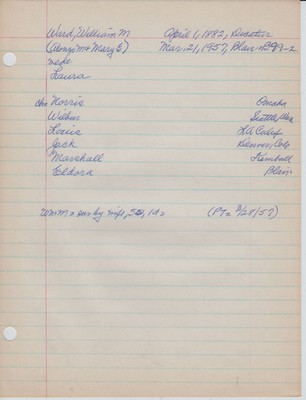 Ward, William M April 1, 1882, Decatur
(Alonzo M + Mary E) Mar. 21, 1957, Blair
wife
Laura
chn Norris Omaha
Wilbur Seattle, Wn
Louis LA Calif
Jack Denver, Colo
Marshall Kimball
Eldora Blair
Wm M s sur by wife, 5s, 1d (PT 3/28/57)